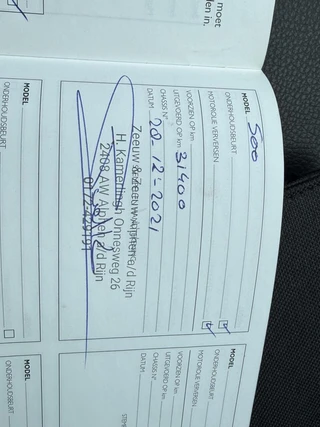 moet
len in.
MODEL 500
ONDERHOUDSBEURT
MOTOROLIE VERVERSEN
VOORZIEN OP km
UITGEVOERD OP km 31400
CHASSIS N°
DATUM 20-12-2021
Zeeuw & Zeeuw Alphen a/d Rijn
H. Kamerlingh Onnesweg 26
2408 AW Alphen a/d Rijn
MODEL
ONDERHOUDSBEURT
MOTOROLIE VERVERSEN
VOORZIEN OP km
UITGEVOERD OP km
CHASSIS N°
DATUM
MODEL
ONDERHOUDSBEURT
MODEL
ONDERHOUDSBEURT